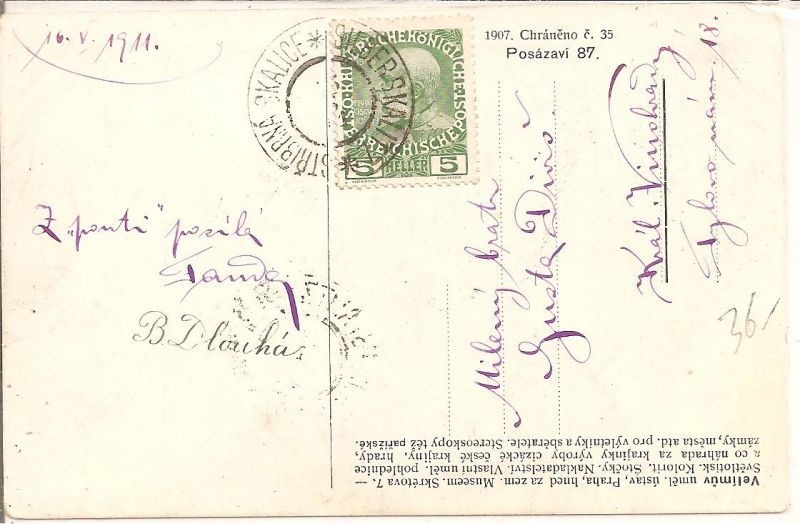 16. V. 1911.
1907. Chráněno č. 35
Posázaví 87.
STŘÍBRNÁ SKALICE * SILBER-SKALITZ *
KAIS. KÖNIGLICHE ÖSTERREICHISCHE POST
5 HELLER 5
Z „pouti“ posílá
B. Dlouhá
Milený bratr
Gusta
Král. Vinohrady
Tylovo nám. 18.
36/-
Velimův uměl. ústav, Praha, hned za zem. Museem. Skrétova 7. —
Světlotisk. Kolorit. Stočky. Nakladatelství. Vlastní uměl. pohlednice
co náhrada za krajinky výroby cizácké české krajiny, hrady,
zámky, města atd. pro výletníky a sběratele. Stereoskopy též pařížské.